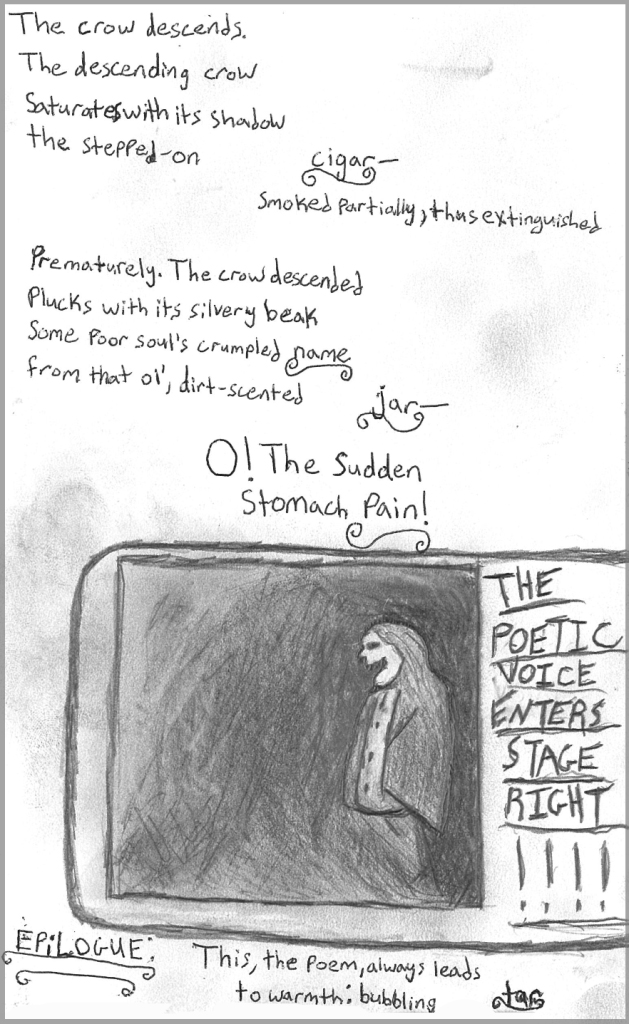 The crow descends.
The descending crow
Saturates with its shadow
the stepped-on
cigar—
Smoked partially, thus extinguished
Prematurely. The crow descended
Plucks with its silvery beak
Some poor soul's crumpled name
from that ol', dirt-scented
jar—
O! The Sudden
Stomach Pain!
THE
POETIC
VOICE
ENTERS
STAGE
RIGHT
!!!!
EPiLOGUE:
This, the poem, always leads
to warmth: bubbling
tar